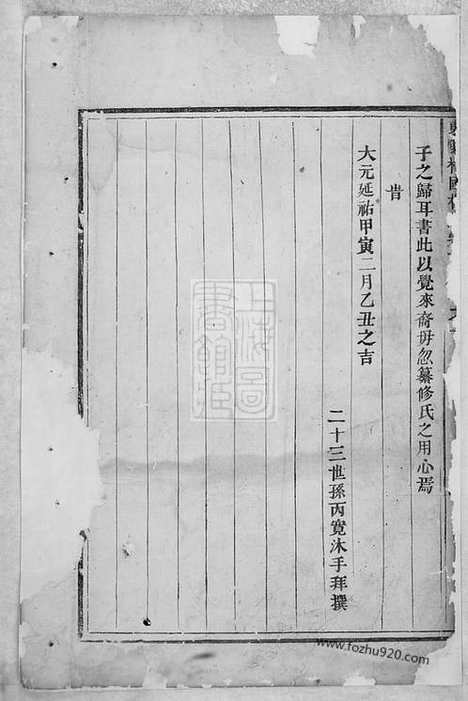 子之歸耳書此以覺來裔毋忽纂修氏之用心焉
昔
大元延祐甲寅二月乙丑之吉
二十三世孫丙寬沐手拜撰
上海圖書館藏
www.fozhu920.com